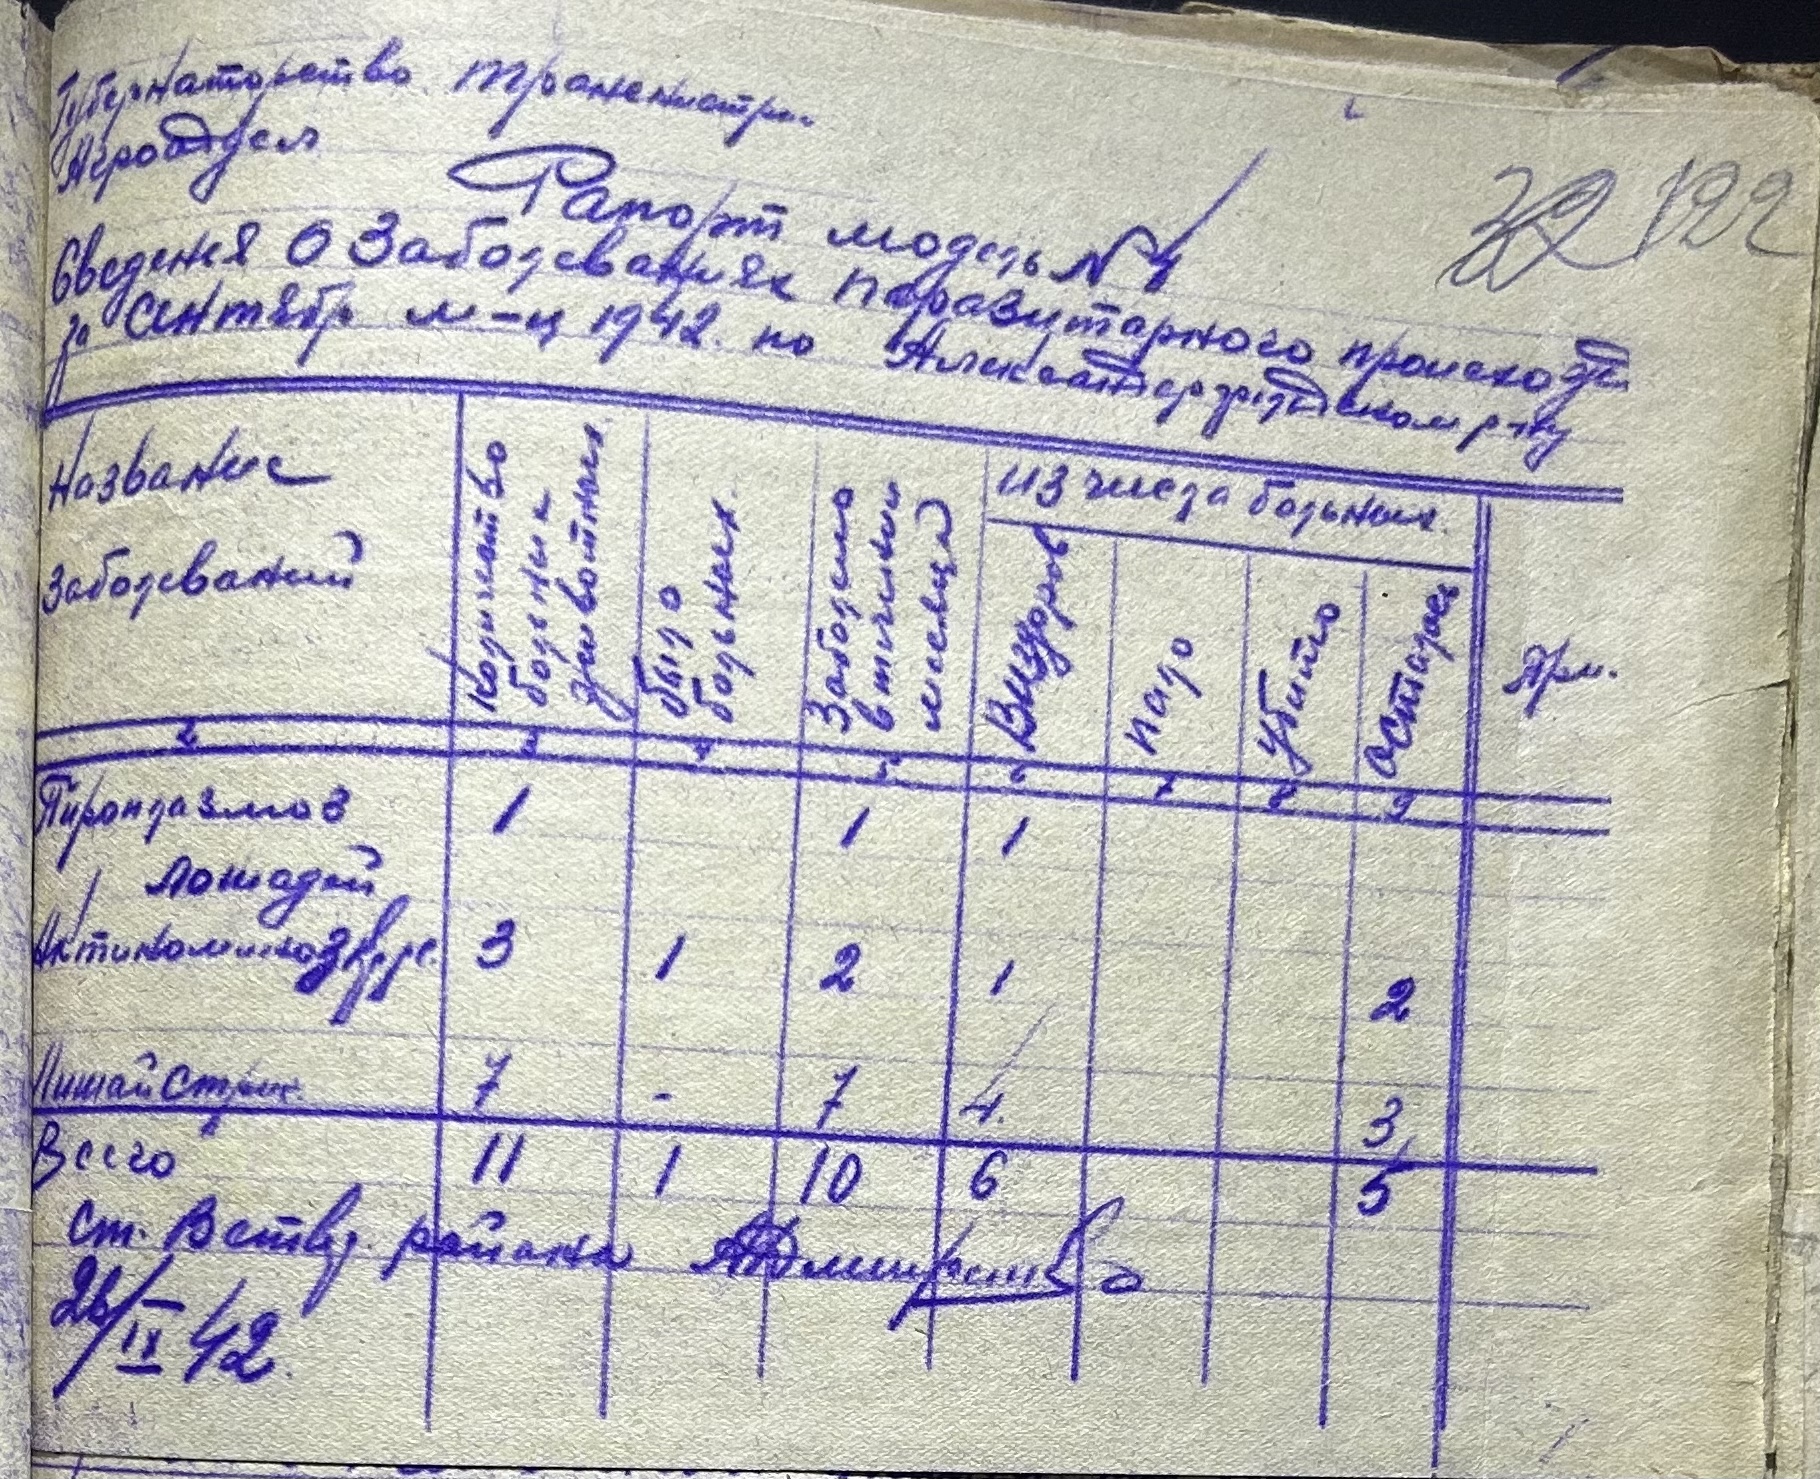 Губернаторство Транснистри.
Агроотдел
Рапорт модель № 4
122
Сведения о заболеваниях паразитарного происхожд
за сентябр м-ц 1942. по Александерфельдском р-ну
Название заболеваний
количество болезни к животных
было больных
Заболело в течении месяца
из числа больных
Выздоров
пало
убито
осталось
Прм.
2 3 4 5 6 7 8 9
Пироплазмоз 1 1 1
лошадей
Актиномикоз кр.р.с. 3 1 2 1 2
Лишай стриг. 7 - 7 4. 3
Всего 11 1 10 6 5
Ст. Ветвр. района
26/IX 42.